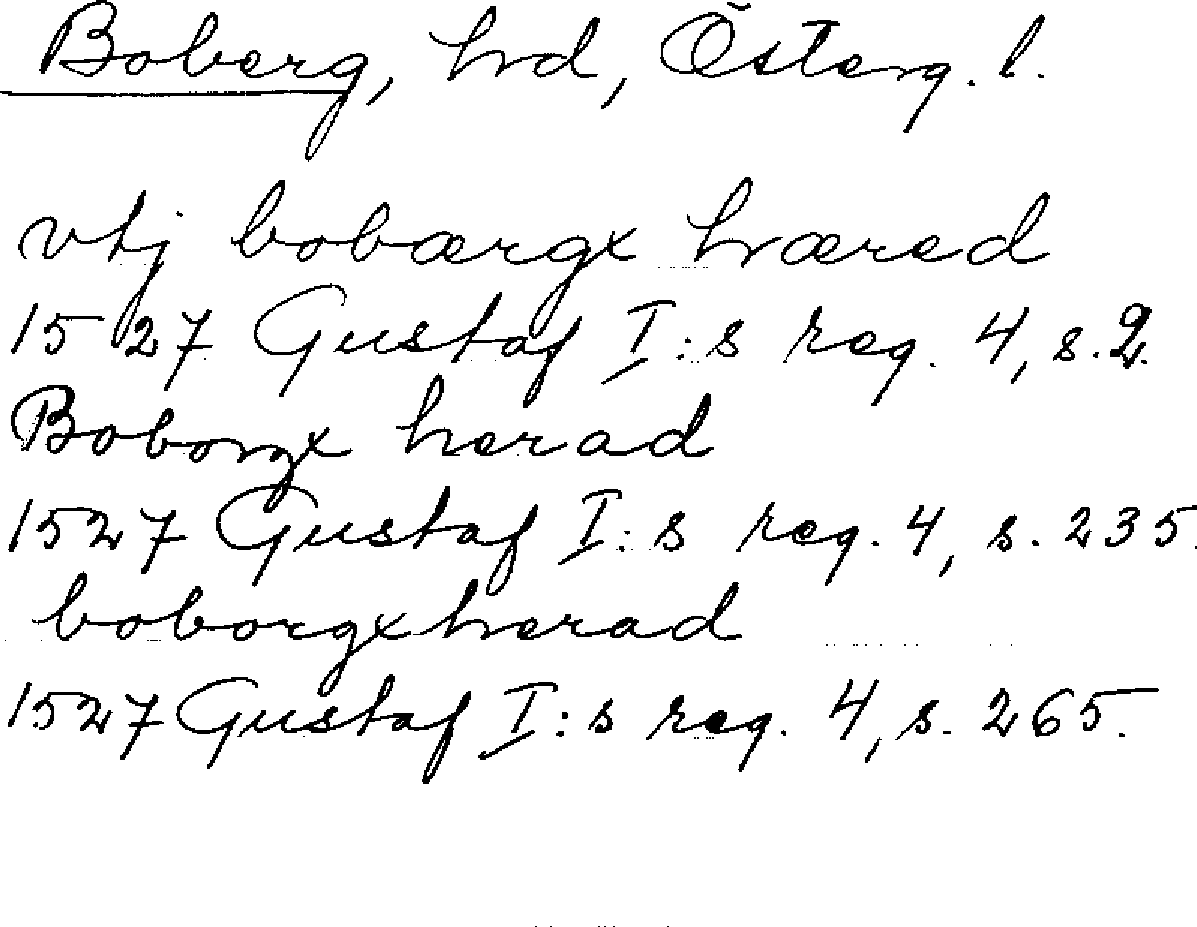 Boberg, hd, Österg. l.
vtj bobærgx hæred
1527 Gustaf I:s reg. 4, s. 2.
Boborgx herad
1527 Gustaf I:s reg. 4, s. 235.
boborgxherad
1527 Gustaf I:s reg. 4, s. 265.